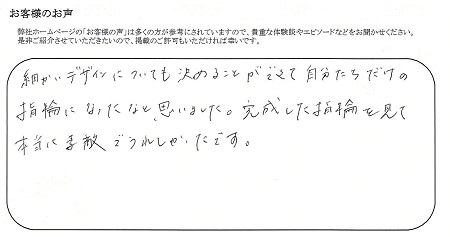 お客様のお声
弊社ホームページの「お客様の声」は多くの方が参考にされていますので、貴重な体験談やエピソードなどをお聞かせください。
是非ご紹介させていただきたいので、掲載のご許可もいただければ幸いです。
細かいデザインについても決めることができて自分たちだけの
指輪になったなと思いました。完成した指輪を見て
本当に素敵でうれしかったです。